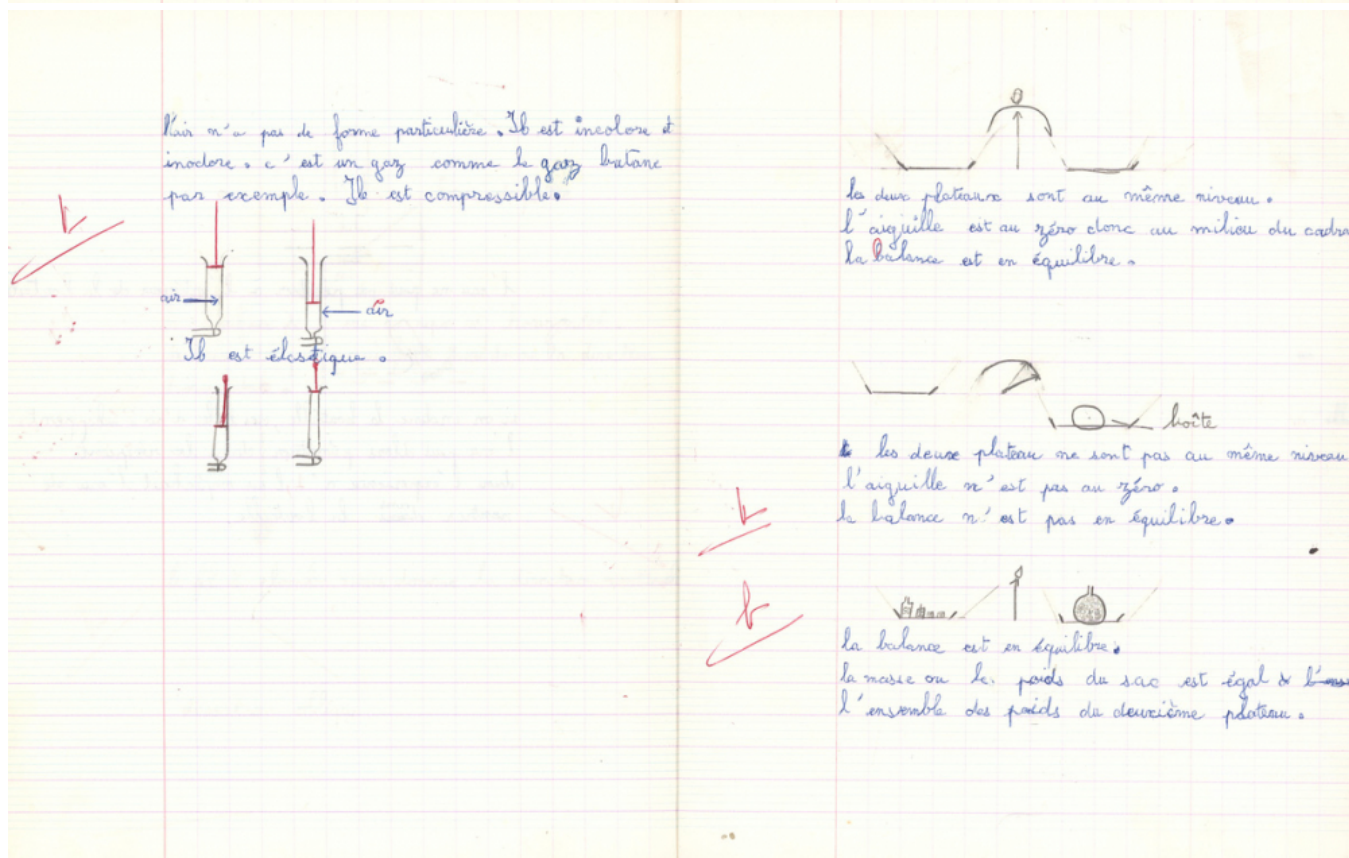 l'air n'a pas de forme particulière. Il est incolore et
inodore. c'est un gaz comme le gaz butane
par exemple. Il est compressible.
air
air
Il est élastique.
les deux plateaux sont au même niveau.
l'aiguille est au zéro donc au milieu du cadra
la balance est en équilibre.
boîte
les deux plateau ne sont pas au même niveau
l'aiguille n'est pas au zéro.
la balance n'est pas en équilibre.
la balance est en équilibre.
la masse ou le poids du sac est égal à
l'ensemble des poids du deuxième plateau.